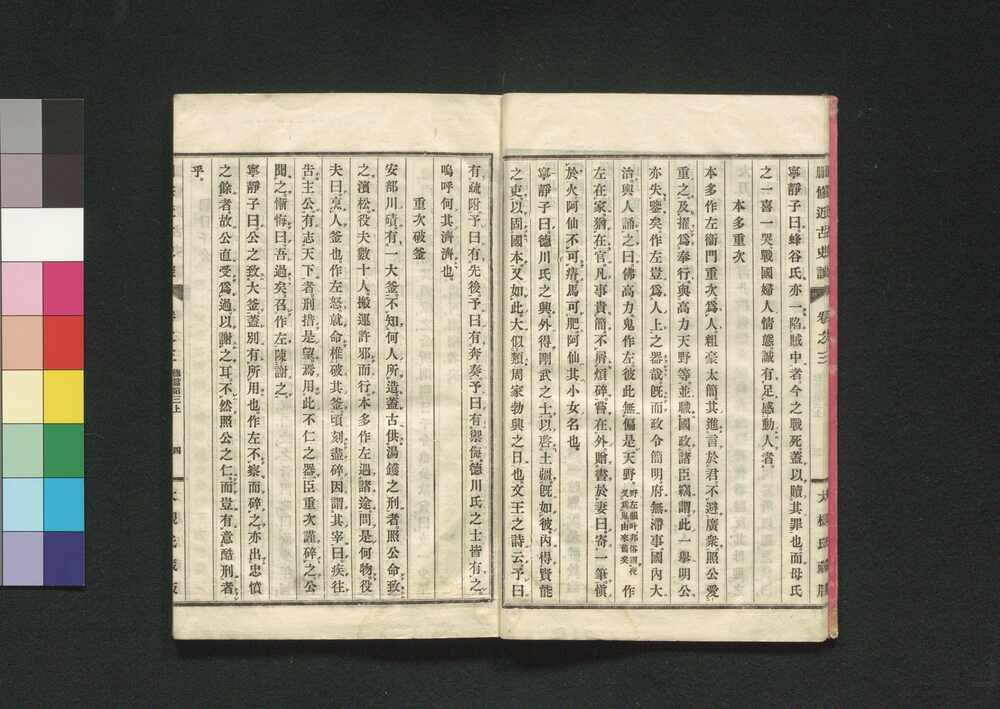 寧靜子曰蜂谷氏亦一陷賊中者今之戰死蓋以贖其罪也而母氏
之一喜一哭戰國婦人情態誠有足感動人者
本多重次
本多作左衞門重次爲人粗豪太簡其進言於君不避廣衆照公愛
重之及擢爲奉行與高力天野等並職國政諸臣竊謂此一擧明公
亦失鑒矣作左豈爲人上之器哉旣而政令簡明府無滯事國內大
治與人誦之曰佛高力鬼作左彼此無偏是天野 作
左在家猶在官凡事貴簡不屑煩碎嘗在外贈書於妻曰寄一筆愼
於火阿仙不可瘠馬可肥阿仙其小女名也
寧靜子曰德川氏之興外得剛武之士以啓土疆旣如彼內得賢能
之吏以固國本又如此大似類周家勃興之日也文王之詩云予曰
有疏附予曰有先後予曰有奔奏予曰有禦侮德川氏之士皆有之
嗚呼何其濟濟也
重次破釜
安部川磧有一大釜不知何人所造蓋古供湯鑊之刑者照公命致
之濱松役夫數十人搬運許邪而行本多作左遇諸途問是何物役
夫曰烹人釜也作左怒就命椎破其釜頃刻盡碎因謂其宰曰疾往
告主公有志天下者刑措是望焉用此不仁之器臣重次謹碎之公
聞之慚悔曰吾過矣召作左陳謝之
寧靜子曰公之致大釜蓋別有所用也作左不察而碎之亦出忠憤
之餘者故公直受爲過以謝之耳不然照公之仁而豈有意酷刑者
乎